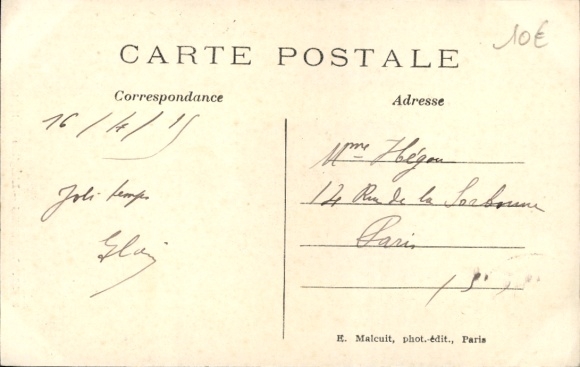 10€
CARTE POSTALE
Correspondance
Adresse
16/4/15
Joli temps
Mme Hégon
14 Rue de la Sorbonne
Paris
E. Malcuit, phot.-édit., Paris